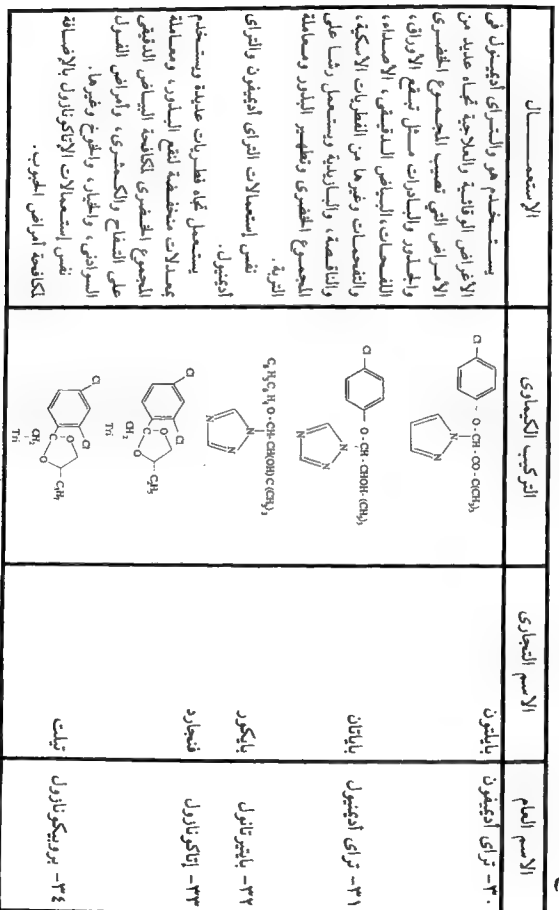 الاسم العام
الاسم التجارى
التركيب الكيماوى
الإستعمـــــال
٣٠- تراى أديمفون
بايلتون
Cl
O - CH - CO - C(CH₃)₃
N
N
يستخدم هو والتراى أديمنول فى
الأغراض الوقائية والعلاجية تجاه عديد من
الأمراض التى تصيب المجموع الخضرى
والجذور والبادرات مثل تبقع الأوراق،
اللفحات، البياض الدقيقى، الاصداء،
والتفحمات وغيرها من الفطريات الاسكية،
والناقصة، والبازيدية ويستعمل رشا على
المجموع الخضرى وتطهير البذور ومعاملة
التربة.
٣١- تراى أديمنيول
بايتان
Cl
O - CH - CHOH- (CH₃)₃
N
N
N
نفس إستعمالات التراى أديمفون والتراى
أديمنول.
٣٢- بايتيرتانول
بايكور
C₆H₅C₆H₄ O - CH-CH(OH)C(CH₃)₃
N
N
N
يستعمل تجاه فطريات عديدة ويستخدم
بمعدلات منخفضة لنقع البذور، ومعاملة
المجموع الخضرى لمكافحة البياض الدقيقى
على التفاح والكمثرى، وامراض الفول
السودانى، والخيار، والخوخ وغيرها.
٣٣- إتاكونازول
فنجارد
Cl
Cl
C
O
O
C₂H₅
CH₂
Tri
نفس إستعمالات الإتاكونازول بالإضافة
لمكافحة أمراض الحبوب.
٣٤- بروبيكونازول
تيلت
Cl
Cl
C
O
O
C₃H₇
CH₂
Tri